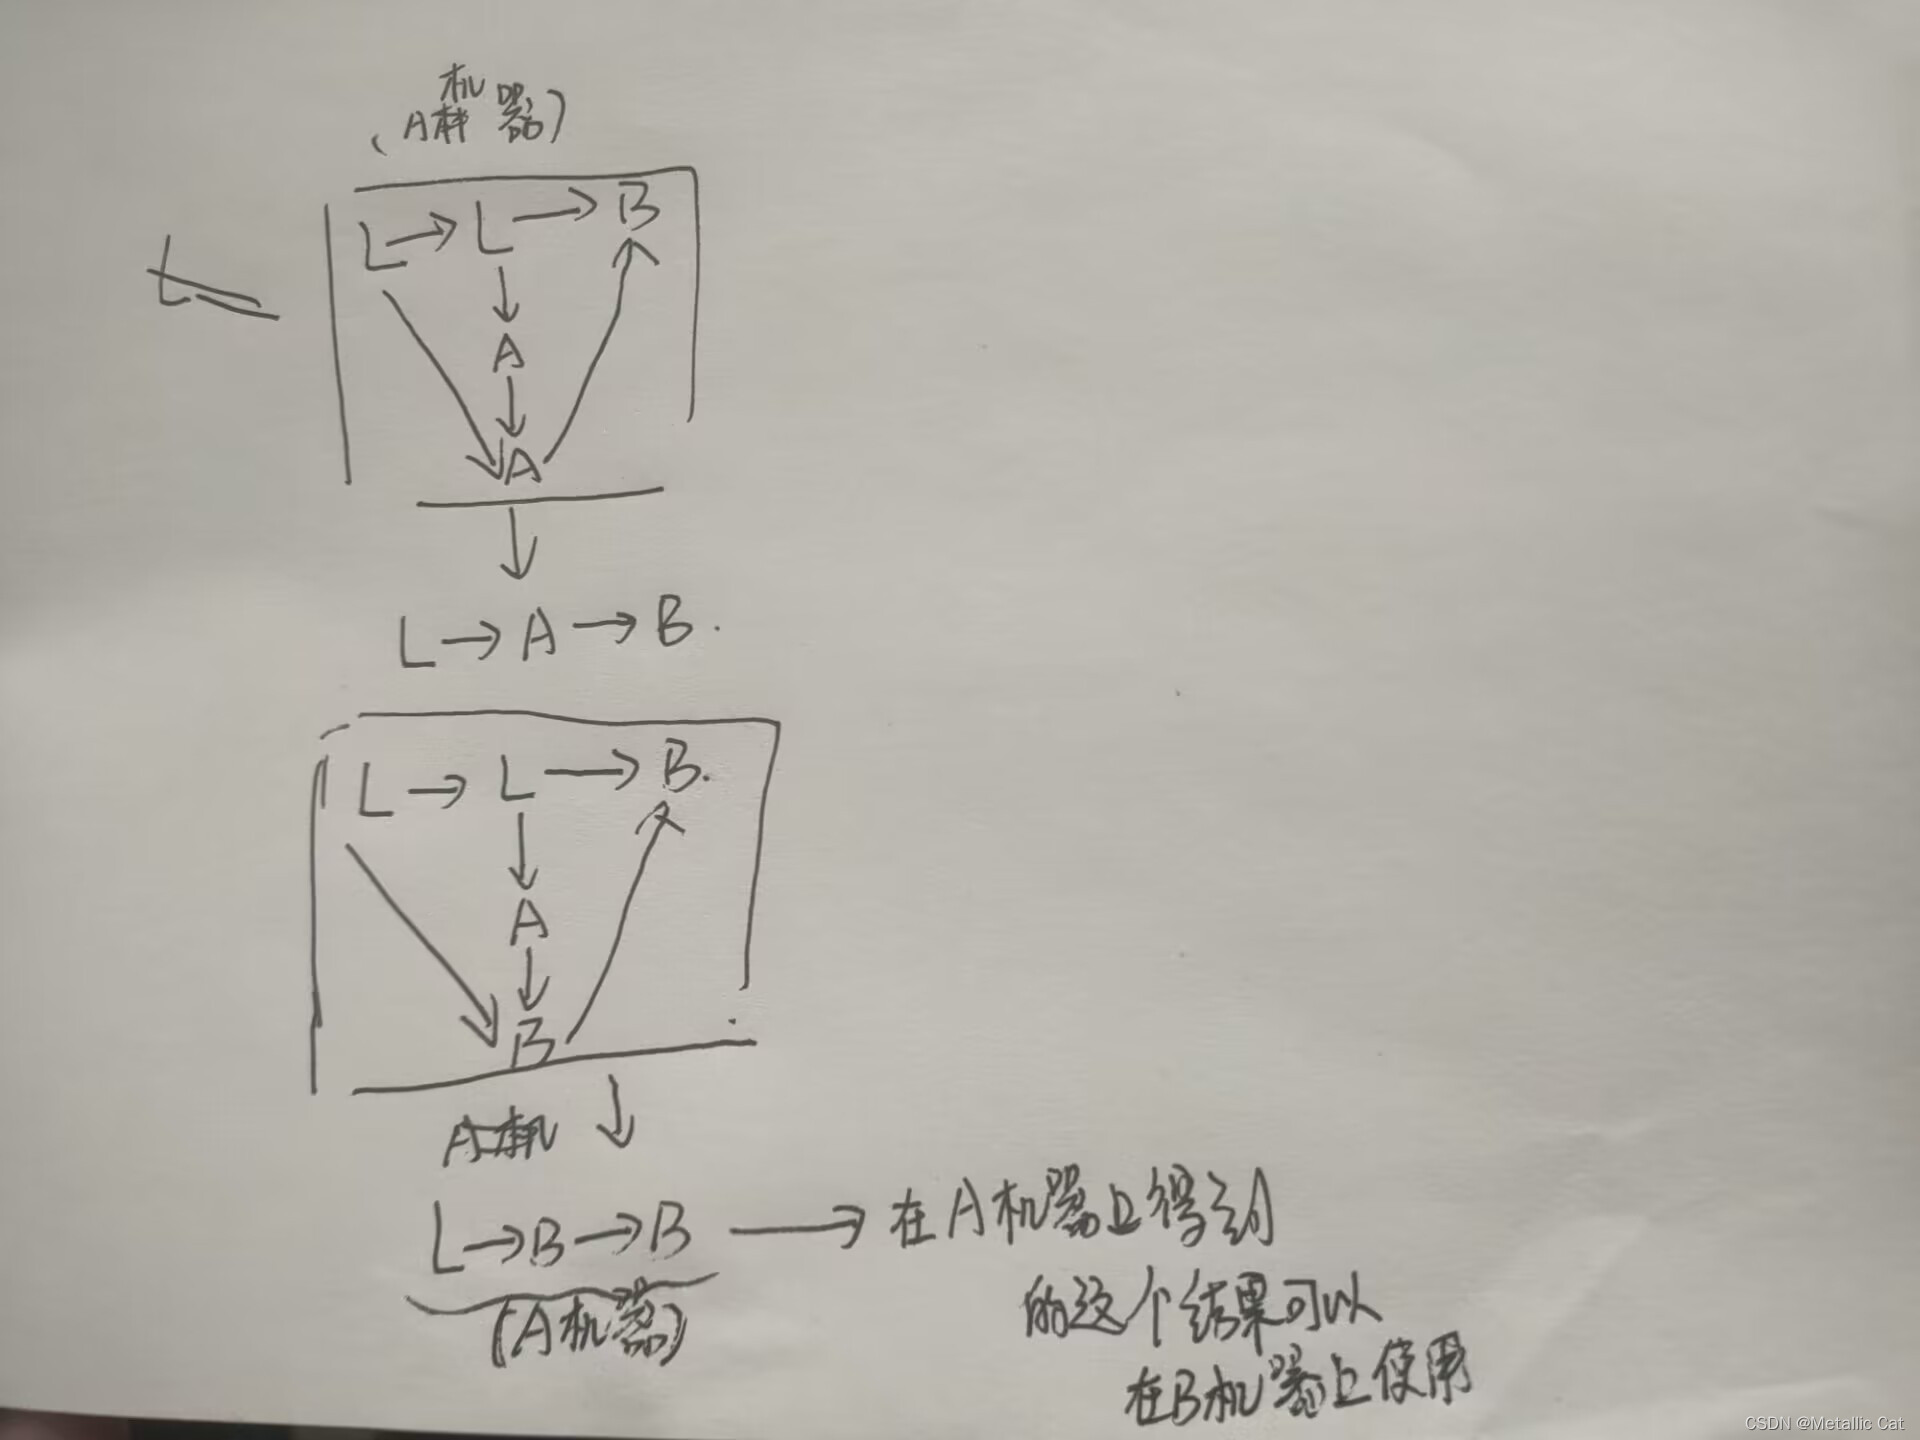 机
(A 器)
L → L → B
↓
A
↓
A
↓
L → A → B.
L → L → B.
↓
A
↓
B
↓
L → B → B → 在A机器上得到
(A机器)
的这个结果可以
在B机器上使用
CSDN @Metallic Cat